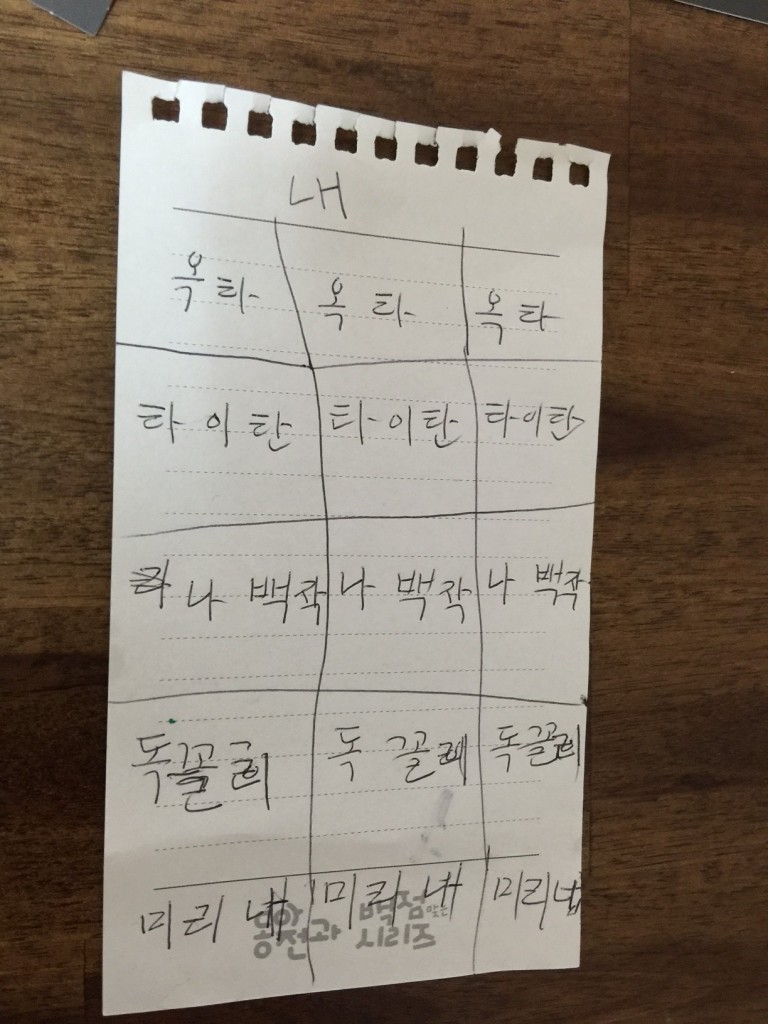 내
옥타 옥타 옥타
타이탄 타이탄 타이탄
나백작 나백작 나백작
독꼴 독꼴레 독꼴
미리내 미리내 미리내
동아 백점 맞는
전과 시리즈